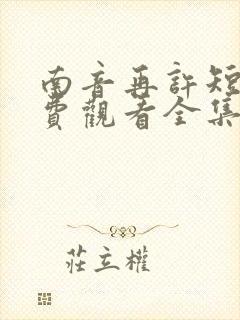 南音再許短
費觀看全集
莊立權